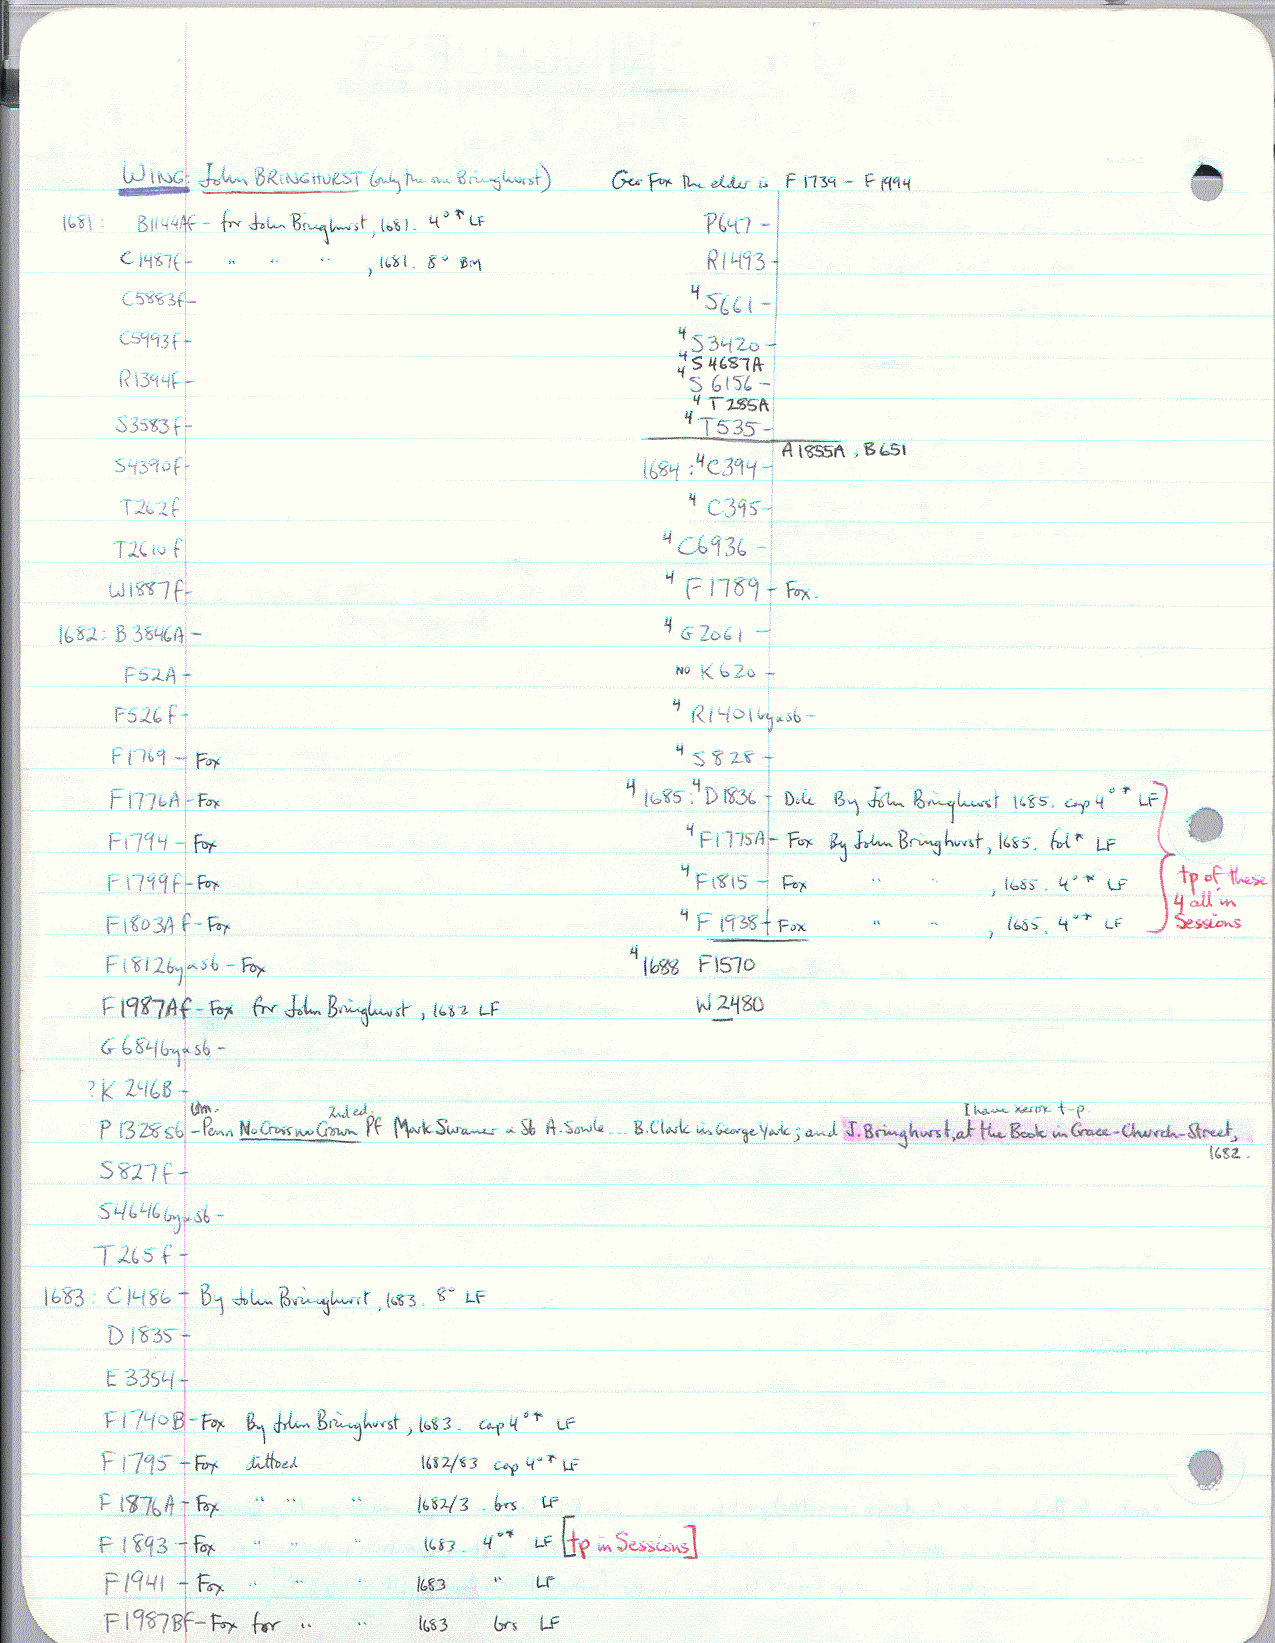 WING: John BRINGHURST (only the one Bringhurst)
1681: B1144Af - for John Bringhurst, 1681. 4°* LF
C1487f - " " " , 1681. 8° BM
C5883f -
C5993f -
R1394f -
S3583f -
S4390f -
T262f
T2610f
W1887f -
1682: B3846A -
F52A -
F526f -
F1769 - Fox
F1776A - Fox
F1794 - Fox
F1799f - Fox
F1803Af - Fox
F1812byasb - Fox
F1987Af - Fox for John Bringhurst, 1682 LF
G684byasb -
?K246B -
Wm. 2nd ed. I have xerox t-p.
P1328sb - Penn No Cross no Crown Pf Mark Swaner a Sb A. Sowle... B. Clark in George Yark; and J. Bringhurst, at the Book in Grace-Church-Street,
1682.
S827f -
S4646byasb -
T265f -
1683: C1486 - By John Bringhurst, 1683. 8° LF
D1835 -
E3354 -
F1740B - Fox By John Bringhurst, 1683. cap 4°* LF
F1795 - Fox dittoed 1682/83 cap 4°* LF
F1876A - Fox " " " 1682/3. brs LF
F1893 - Fox " " " 1683. 4°* LF [tp in Sessions]
F1941 - Fox " " " 1683 " LF
F1987Bf - Fox for " " 1683 brs LF
Geo Fox the elder is F1739 - F1994
P647 -
R1493 -
4 S661 -
4 S3420 -
4 S4687A
4 S6156 -
4 T285A
4 T535 -
A1855A, B651
1684: 4 C394 -
4 C395 -
4 C6936 -
4 F1789 - Fox.
4 G2061 -
NO K620 -
4 R1401byasb -
4 S828 -
4 1685: 4 D1836 - Dole By John Bringhurst 1685. cap 4°* LF
4 F1775A - Fox By John Bringhurst, 1685. fol* LF
4 F1815 - Fox " " , 1685. 4°* LF
4 F1938 - Fox " " , 1685. 4°* LF
tp of these
4 all in
Sessions
4 1688 F1570
W2480